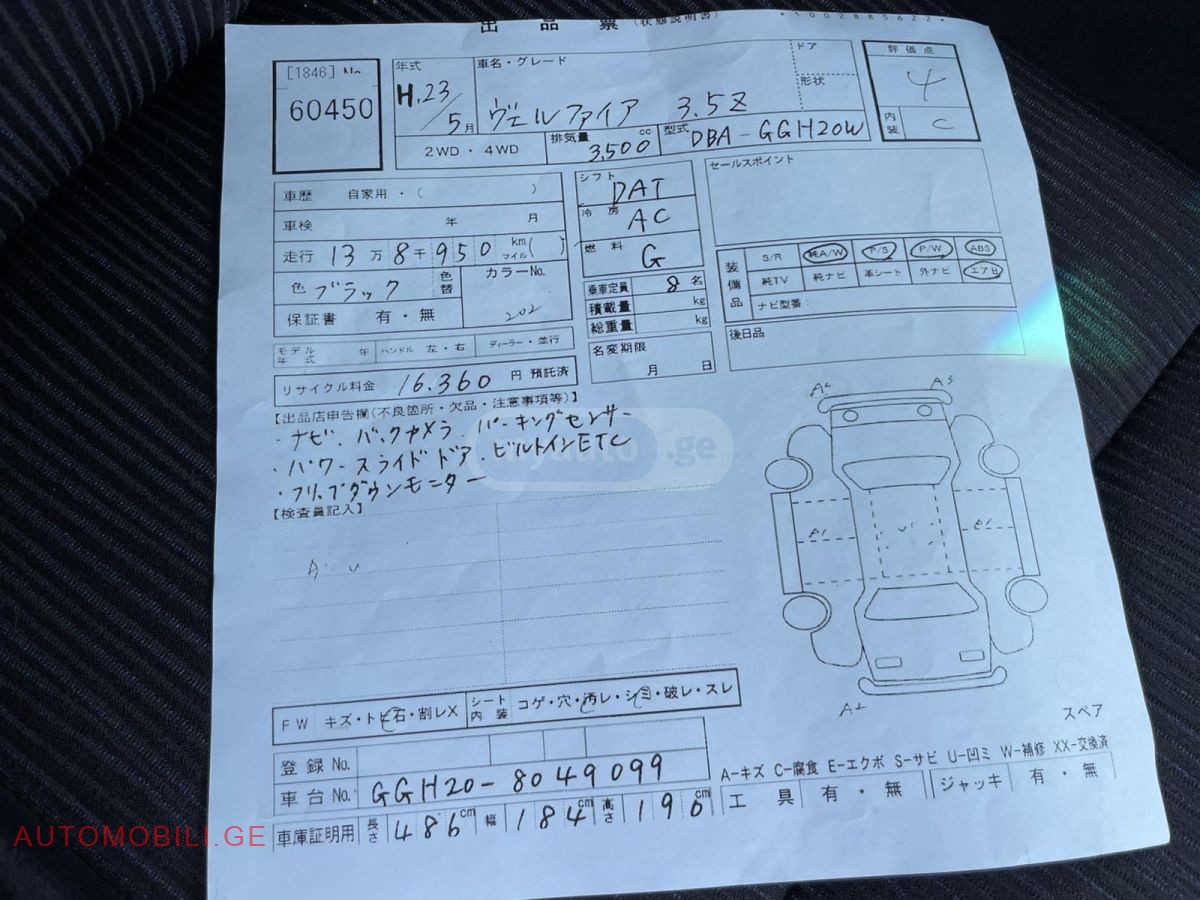 出品票 (状態説明書)
*1002885622*
[1846] No
60450
年式
H.23/5月
車名・グレード
ヴェルファイア 3.5Z
ドア
形状
評価点
4
内装 C
2WD・4WD
排気量 3,500 cc
型式 DBA-GGH20W
車歴 自家用・( )
車検 年 月
走行 13万8千950 km マイル( )
色 ブラック
色替
カラーNo.
202
保証書 有・無
シフト DAT
冷房 AC
燃料 G
乗車定員 8名
積載量 kg
総重量 kg
名変期限
月 日
セールスポイント
装備品
S/R 純A/W P/S P/W ABS
純TV 純ナビ 革シート 外ナビ エアB
ナビ型番:
後日品
モデル年式 年 ハンドル 左・右 ディーラー・並行
リサイクル料金 16.360 円 預託済
【出品店申告欄(不良箇所・欠品・注意事項等)】
・ナビ、バックカメラ、パーキングセンサー
・パワースライドドア、ビルトインETC
・フリップダウンモニター
myauto.ge
【検査員記入】
A' U
A2 A3
A1 U' A1
A2
FW キズ・トビ石・割レX
シート内装 コゲ・穴・汚レ・シミ・破レ・スレ
スペア
登録No.
車台No. GGH20-8049099
A-キズ C-腐食 E-エクボ S-サビ U-凹ミ W-補修 XX-交換済
工具 有・無 ジャッキ 有・無
車庫証明用 長さ 486cm 幅 184cm 高さ 196cm
AUTOMOBILI.GE